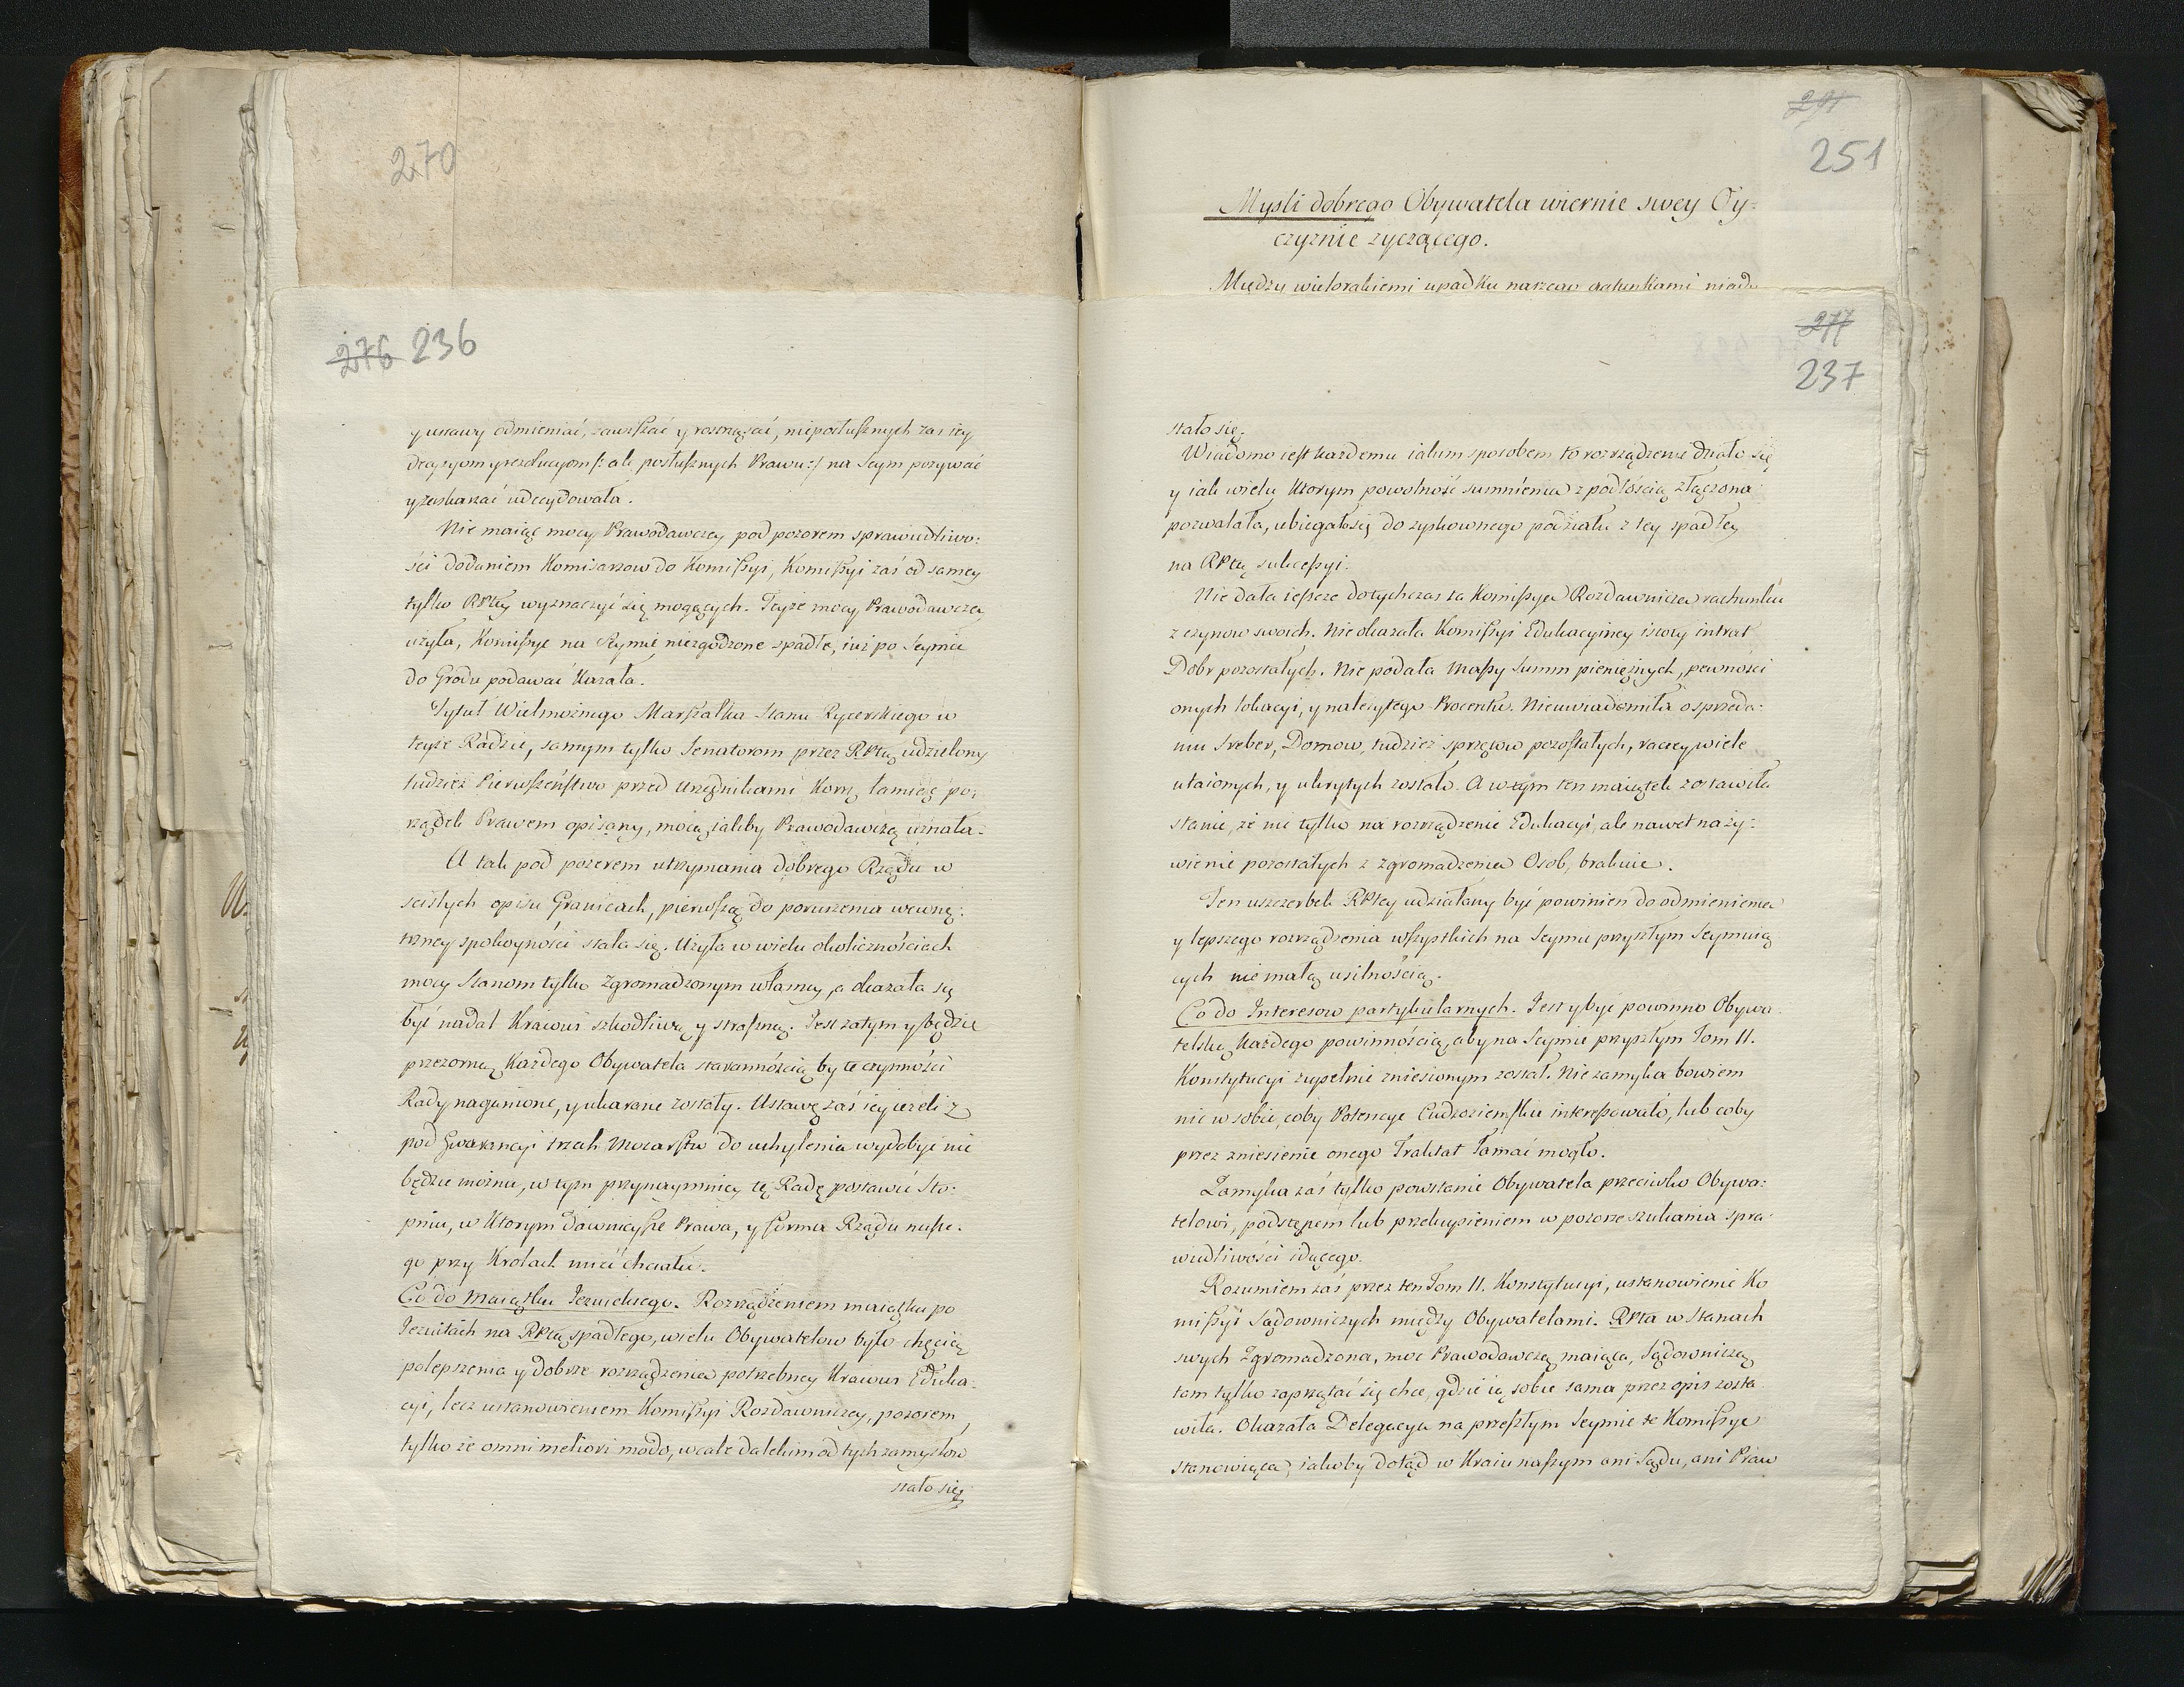 270
276 236
y ustawy odmieniać, zawieszać y rostrząsać, nieposłusznych zas tey
decyzyom y rezolucyom /: ale posłusznych Prawu :/ na Seym pozywać
y zaskarzać udecydowała.
Nie maiąc mocy Prawodawczey pod pozorem sprawiedliwo:
ści dodaniem Komisarzow do Komissyi, Komissyi zaś od samey
tylko Rptey wyznaczyć się mogących. Teyże mocy Prawodawczey
użyła, Komissye na Seymie niezgodzone spadłe, iuż po Seymie
do Grodu podawać kazała.
Tytuł Wielmożnego Marszałka Stanu Rycerskiego w
teyże Radzie, samym tylko Senatorom przez Rptą udzielony
tudzież Pierwszeństwo przed Urzędnikami Kory łamiąc po:
rządek Prawem opisany, mocą iakby Prawodawczą uznała.
A tak pod pozorem utrzymania dobrego Rządu w
scisłych opisu Granicach, pierwszą do poruszenia wewnę:
trzney spokoyności stała się. Użyła w wielu okolicznościach
mocy Stanom tylko zgromadzonym własney, a okazała się
być nadal Kraiowi szkodliwą y straszną. Jest zatym y będzie
przezorną Każdego Obywatela starannością by te czynności
Rady naganione, y ukarane zostały. Ustawę zaś iey ieżeli z
pod Gwarancyi trzech Mocarstw do uchylenia wydobyć nie
będzie można, w tym przynaymniey tę Radę postawić Sto:
pniu, w ktorym dawnieysze Prawa, y forma Rządu nasze:
go przy Krolach mieć chciała.
Co do Maiątku Jezuickiego. Rozrządzeniem maiątku po
Jezuitach na Rptą spadłego, wielu Obywatelow było chęcią
polepszenia y dobrze rozrządzenia potrzebney Kraiowi Eduka:
cyi, lecz ustanowieniem Komissyi Rozdawniczey, pozorem
tylko że omni meliori modo, wcale dalekim od tych zamysłow
stało się
291
251
Mysli dobrego Obywatela wiernie swey Oy:
czyznie zyczącego.
Między wielorakiemi upadku naszego gatunkami
277
237
stało się.
Wiadomo iest każdemu iakim sposobem to rozrządzenie działo się
y iak wielu ktorym powolność sumnienia z podłością złączona
pozwalała, ubiegało się do zyskownego podziału z tey spadłey
na Rptą sukcessyi.
Nie dała ieszcze dotychczas ta Komissya Rozdawnicza rachunku
z czynow swoich. Nie okazała Komissyi Edukacyiney istoty intrat
Dobr pozostałych. Nie podała Massy Summ pieniężnych, pewności
onych lokacyi, y należytego Procentu. Nieuwiadomiła o sprzeda:
niu Sreber, Domow, tudzież sprzętow pozostałych, raczey wiele
utaionych, y ukrytych zostało. A w tym ten maiątek zostawiła
stanie, że nie tylko na rozrządzenie Edukacyi, ale nawet na ży:
wienie pozostałych z zgromadzenia Osob, brakuie.
Ten uszczerbek Rptey udziałany być powinien do odmienienia
y lepszego rozrządzenia wszystkich na Seymie przyszłym Seymuią
cych nie małą usilnością.
Co do Interesow partykularnych. Jest y być powinno Obywa:
telską każdego powinnością, aby na Seymie przyszłym Tom II.
Konstytucyi zupełnie zniesionym został. Nie zamyka bowiem
nic w sobie, coby Potencye Cudzoziemskie interessowało, lub coby
przez zniesienie onego Traktat łamać mogło.
Zamyka zaś tylko powstanie Obywatela przeciwko Obywa:
telowi, podstępem lub przekupieniem w pozorze szukania spra:
wiedliwości idącego.
Rozumiem zaś przez ten Tom II. Konstytucyi, ustanowienie Ko
missyi Sądowniczych między Obywatelami. Rpta w Stanach
swych Zgromadzona, moc Prawodawczą maiąca, Sądowniczą
tam tylko zaprzątać się chce, gdzie ią sobie sama przez opis zosta
wiła. Okazała Delegacya na przeszłym Seymie te Komissye
stanowiąca, iakoby dotąd w Kraiu naszym ani Sądu, ani Praw